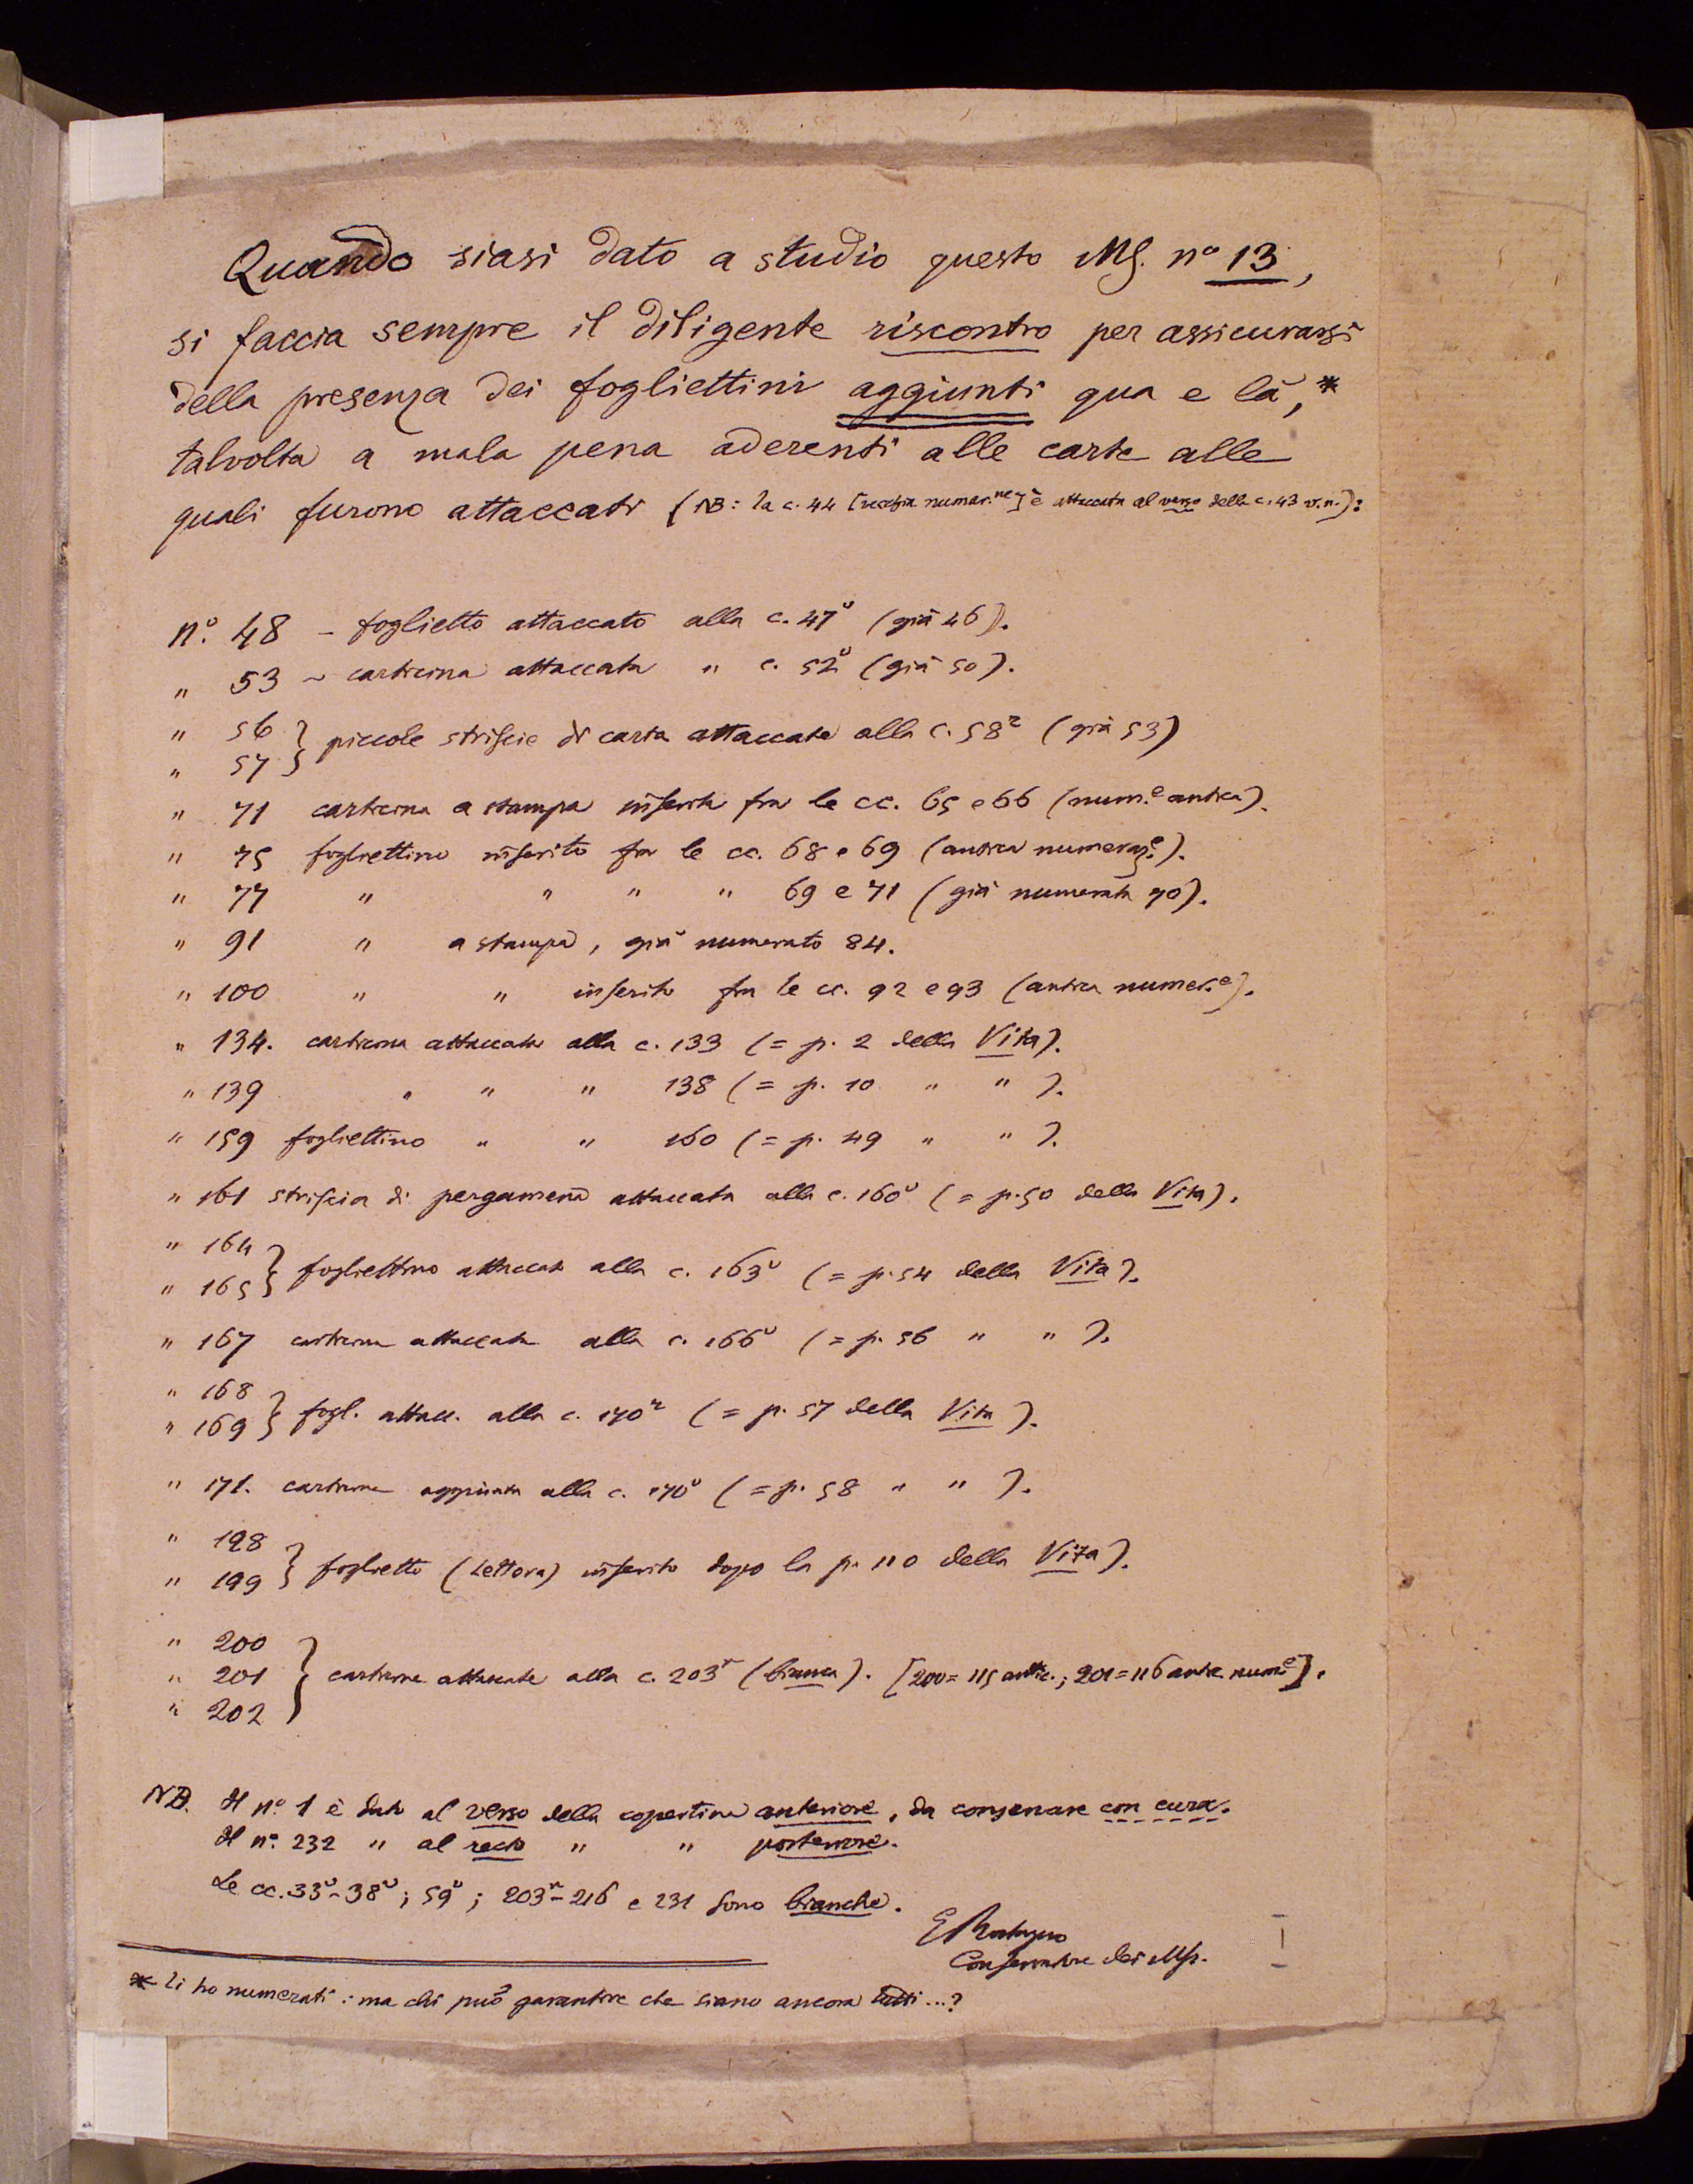 Quando siasi dato a studio questo MS. nº 13,
si faccia sempre il diligente riscontro per assicurarsi
della presenza dei fogliettini aggiunti qua e là,*
talvolta a mala pena aderenti alle carte alle
quali furono attaccati (NB: la c. 44 [vecchia numer.ne] è attaccata al verso della c. 43 v.n.):
nº. 48 – foglietto attaccato alla c. 47v (già 46).
" 53 ~ carticina attaccata " c. 52v (già 50).
" 56 } piccole striscie di carta attaccate alla c. 58r (già 53)
" 57
" 71 carticina a stampa inserita fra le cc. 65 e 66 (num.e antica).
" 75 fogliettino inserito fra le cc. 68 e 69 (antica numeraz.e).
" 77 " " " " 69 e 71 (già numerata 70).
" 91 " a stampa, già numerato 84.
" 100 " " inserito fra le cc. 92 e 93 (antica numer.e).
" 134. carticina attaccata alla c. 133 (= p. 2 della Vita).
" 139 " " " 138 (= p. 10 " " ).
" 159 fogliettino " " 160 (= p. 49 " " ).
" 161 striscia di pergamena attaccata alla c. 160v (= p. 50 della Vita).
" 164
" 165 } fogliettino attaccato alla c. 163v (= p. 54 della Vita).
" 167 carticina attaccata alla c. 166v (= p. 56 " " ).
" 168
" 169 } fogl. attacc. alla c. 170r (= p. 57 della Vita).
" 171. carticina aggiunta alla c. 170v (= p. 58 " " ).
" 198
" 199 } foglietto (Lettera) inserito dopo la p. 110 della Vita).
" 200
" 201 } carticine attaccate alla c. 203r (bianca). [200 = 115 antic.; 201 = 116 antic. num.e].
" 202
NB. Il nº. 1 è dato al verso della copertina anteriore, da conservare con cura.
Il nº. 232 " al recto " " posteriore.
Le cc. 33v-38v; 59v; 203r-216 e 231 sono bianche.
Conservatore dei Mss.
* Li ho numerati: ma chi può garantire che siano ancora tutti...?